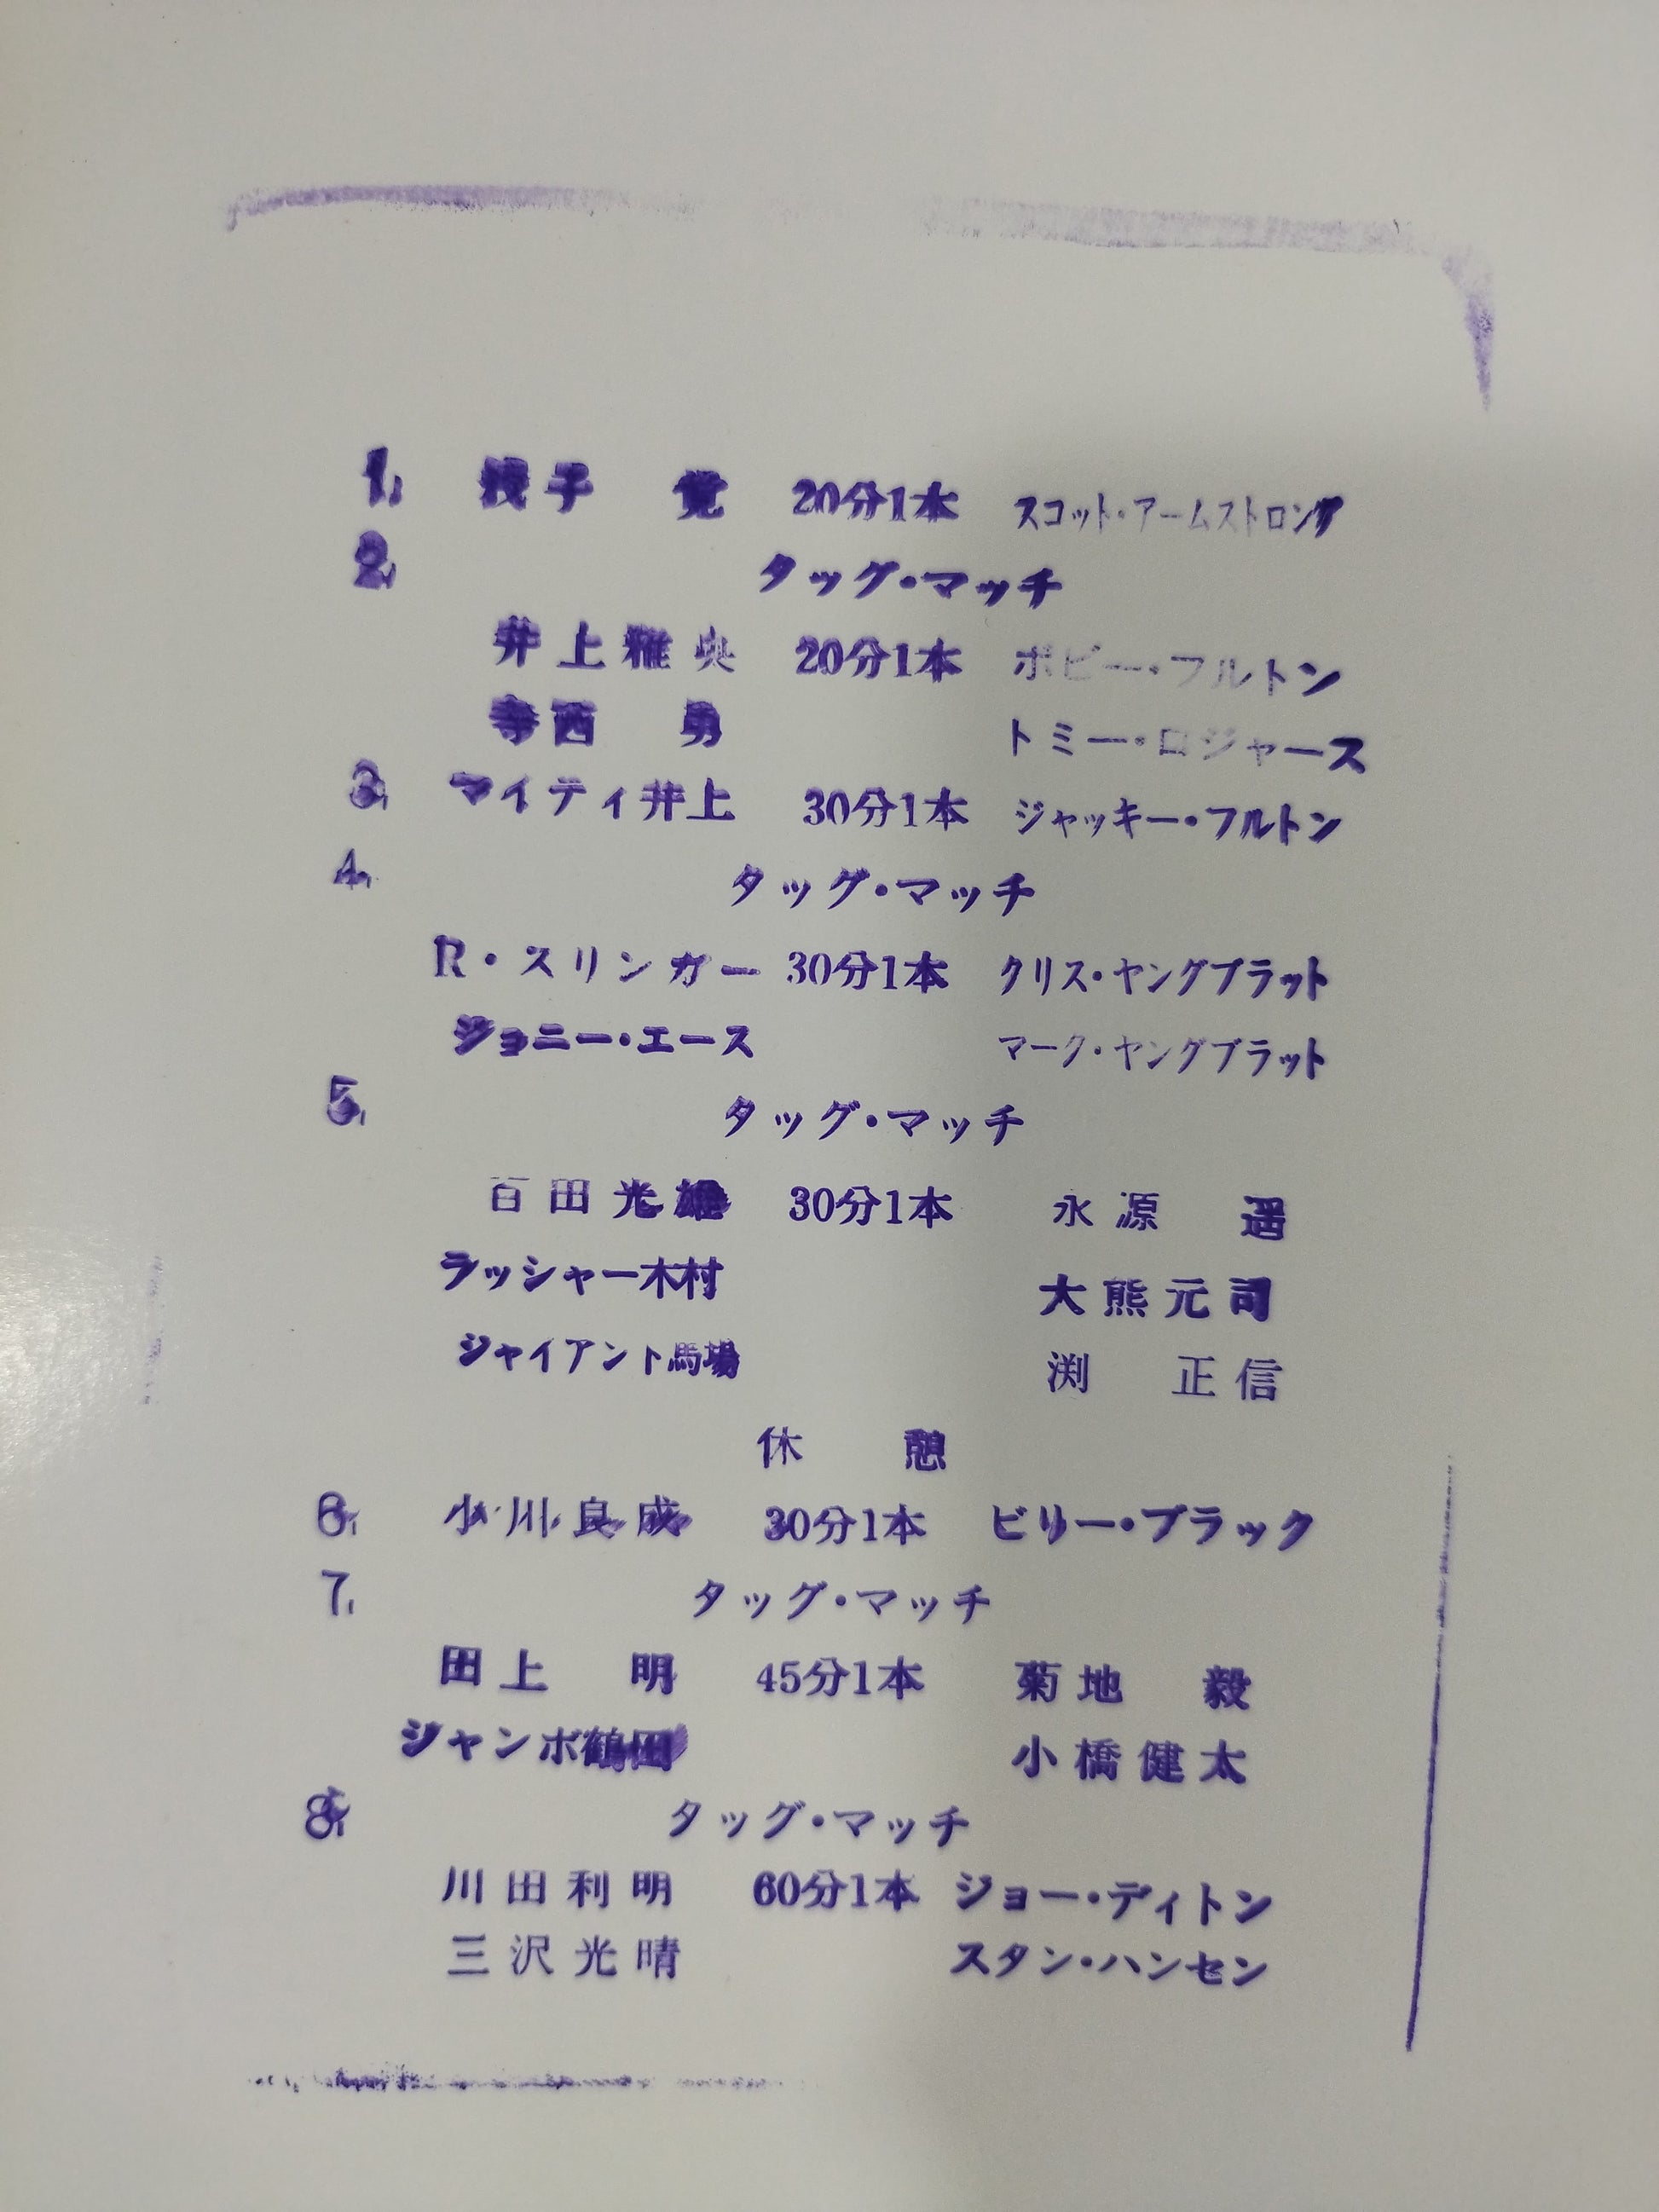 1, 浅子 覚 20分1本 スコット・アームストロング
2, タッグ・マッチ
井上雅央 20分1本 ボビー・フルトン
寺西 勇 トミー・ロジャース
3, マイティ井上 30分1本 ジャッキー・フルトン
4, タッグ・マッチ
R・スリンガー 30分1本 クリス・ヤングブラット
ジョニー・エース マーク・ヤングブラット
5, タッグ・マッチ
百田光雄 30分1本 永源 遥
ラッシャー木村 大熊元司
ジャイアント馬場 渕 正信
休 憩
6, 小川良成 30分1本 ビリー・ブラック
7, タッグ・マッチ
田上 明 45分1本 菊地 毅
ジャンボ鶴田 小橋健太
8, タッグ・マッチ
川田利明 60分1本 ジョー・ディトン
三沢光晴 スタン・ハンセン